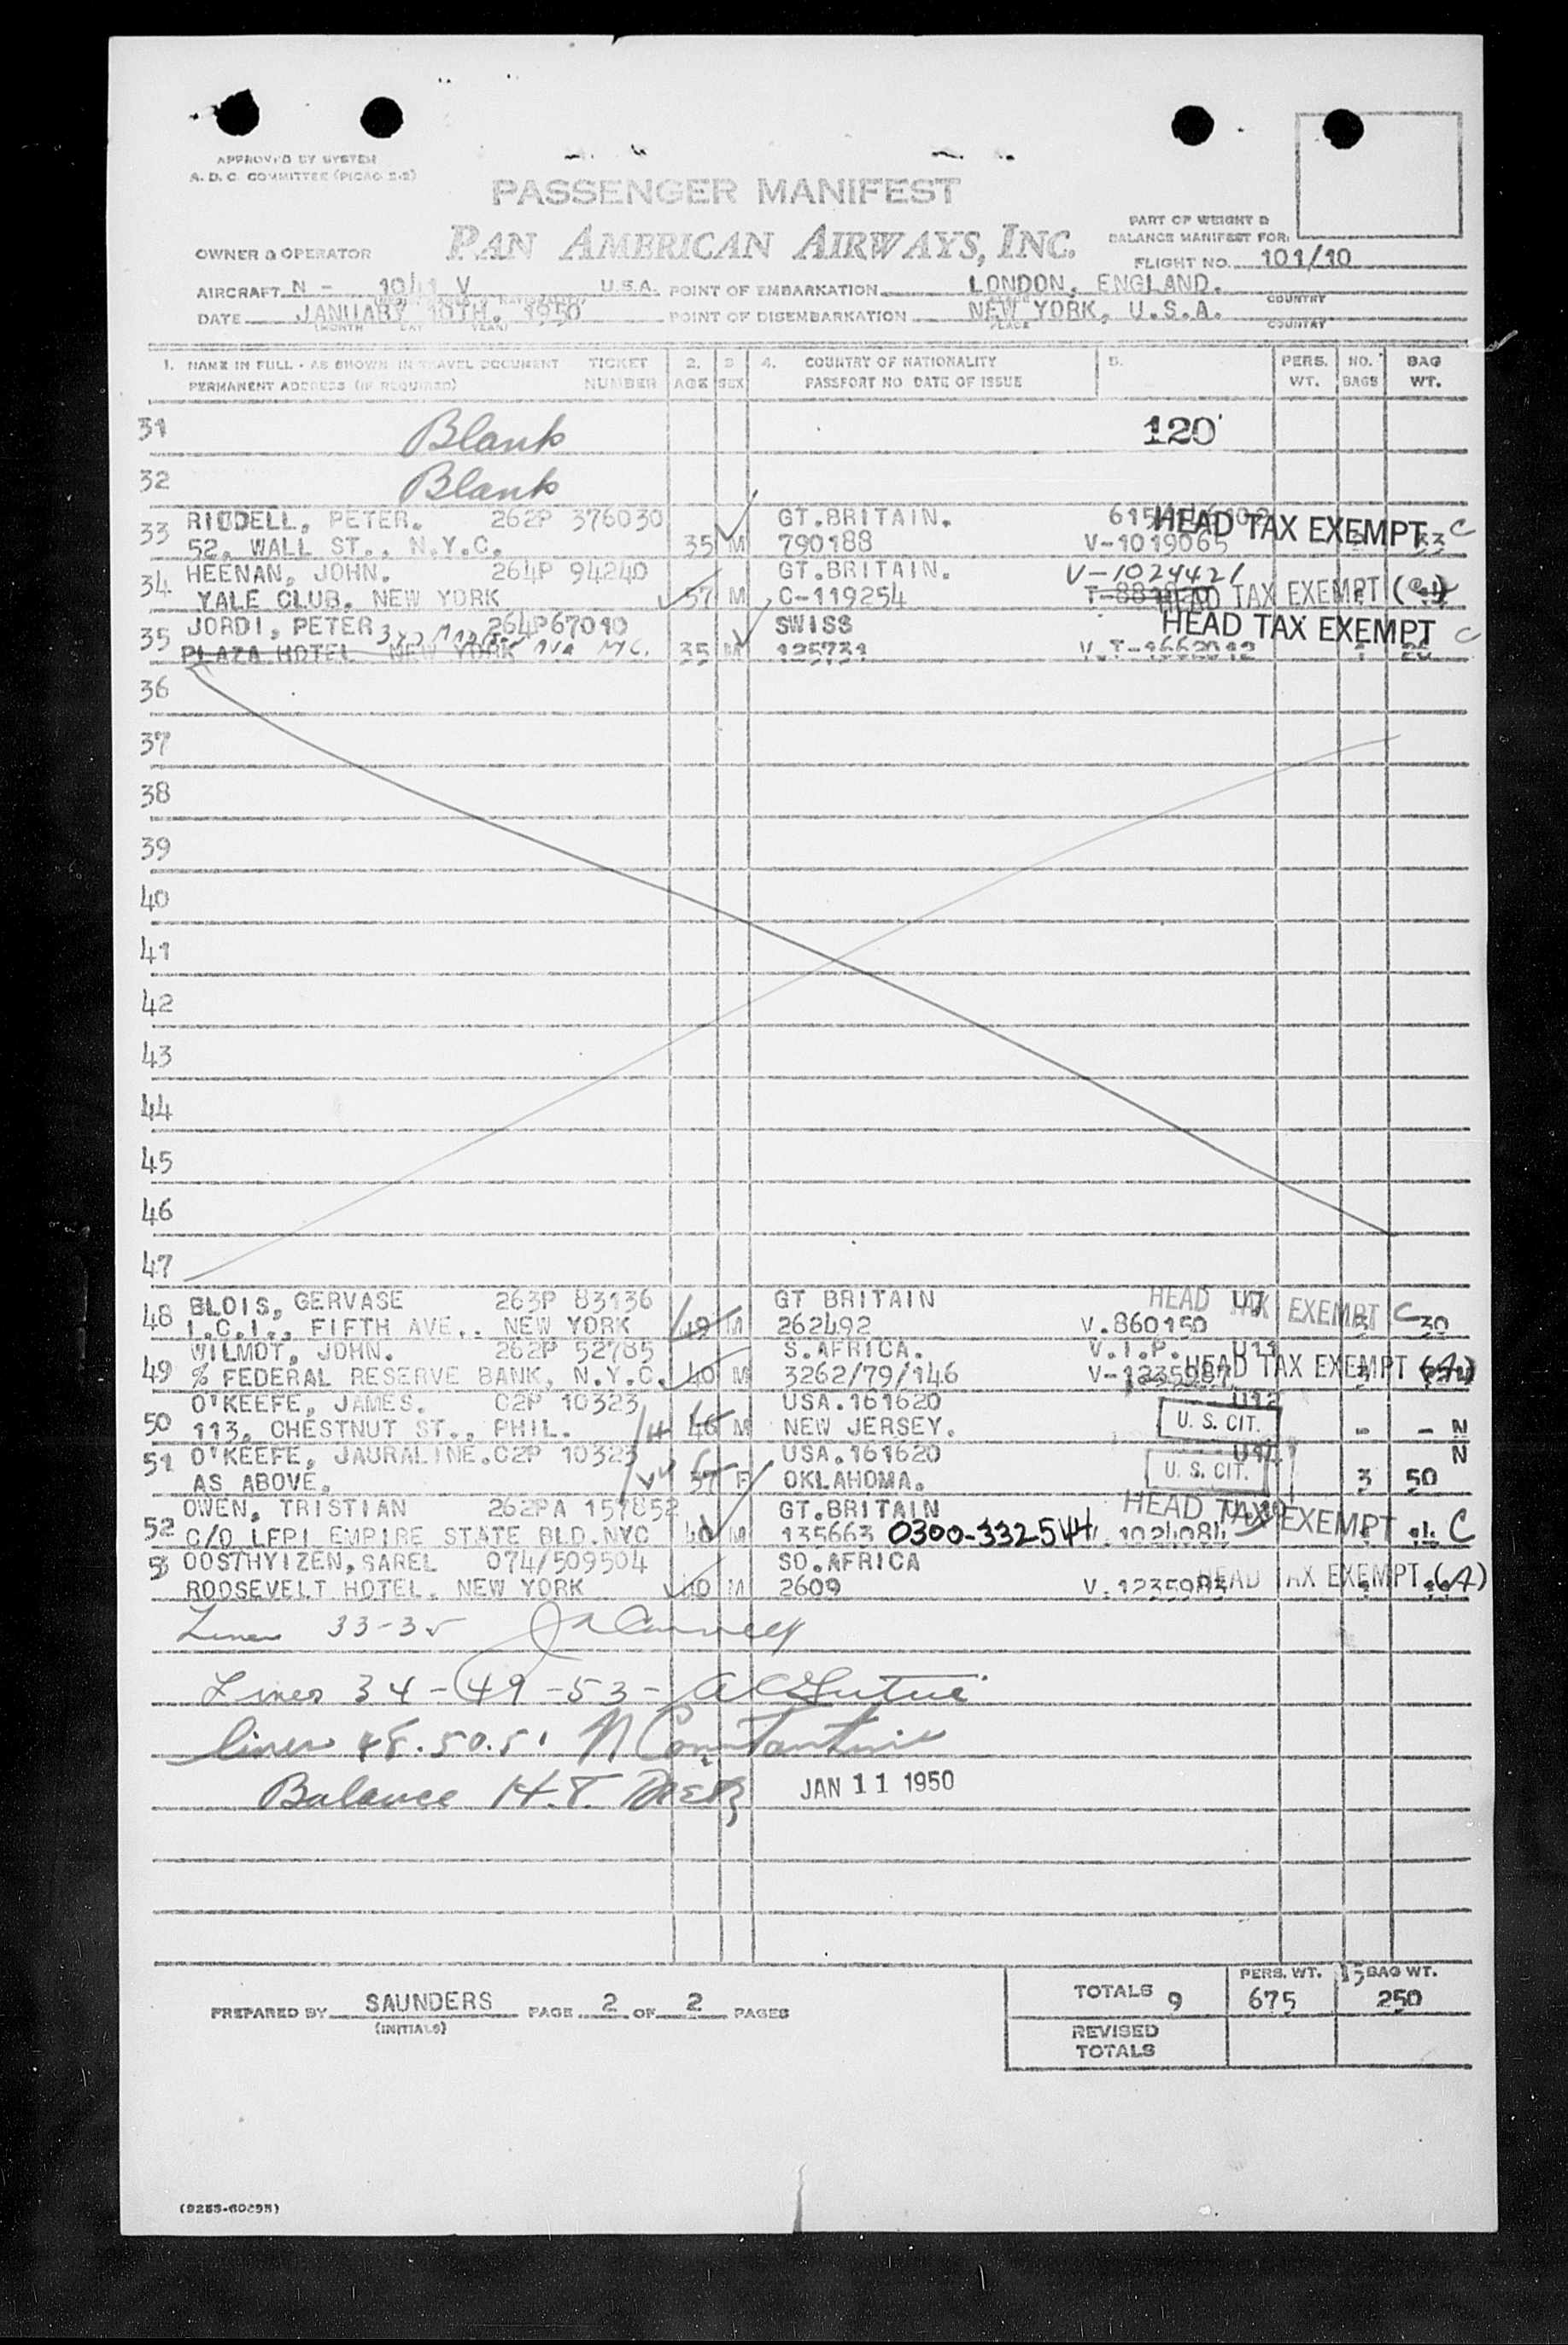 APPROVED BY SYSTEM
A. D. C. COMMITTEE (PICAO 2-2)
PASSENGER MANIFEST
PAN AMERICAN AIRWAYS, INC.
PART OF WEIGHT &
BALANCE MANIFEST FOR:
OWNER & OPERATOR
FLIGHT NO. 101/10
AIRCRAFT N - 1041 V U.S.A. POINT OF EMBARKATION LONDON, ENGLAND. COUNTRY
DATE JANUARY 10TH. 1950 POINT OF DISEMBARKATION NEW YORK, U.S.A.
(MONTH DAY YEAR) PLACE COUNTRY
1. NAME IN FULL - AS SHOWN IN TRAVEL DOCUMENT TICKET 2. 3 4. COUNTRY OF NATIONALITY 5. PERS. NO. BAG
PERMANENT ADDRESS (IF REQUIRED) NUMBER AGE SEX PASSPORT NO DATE OF ISSUE WT. BAGS WT.
31 Blank 120
32 Blank
33 RIDDELL, PETER. 262P 376030 GT.BRITAIN. HEAD TAX EXEMPT C
52, WALL ST., N.Y.C. 35 M 790188 V-1019065 33
34 HEENAN, JOHN. 264P 94240 GT.BRITAIN. V-1024421
YALE CLUB, NEW YORK 57 M C-119254 HEAD TAX EXEMPT
35 JORDI, PETER 264P67010 SWISS HEAD TAX EXEMPT C
PLAZA HOTEL NEW YORK AVE NYC. 35 M 125731 V.T-1662012 1 26
36
37
38
39
40
41
42
43
44
45
46
47
48 BLOIS, GERVASE 263P 83136 GT BRITAIN HEAD TAX EXEMPT C
I.C.I., FIFTH AVE., NEW YORK 49 M 262492 V.860150 3 30
49 WILMOT, JOHN. 262P 52785 S.AFRICA. V.I.P. U11
% FEDERAL RESERVE BANK, N.Y.C. 40 M 3262/79/146 V-1235987 HEAD TAX EXEMPT (A)
50 O'KEEFE, JAMES. C2P 10323 USA.161620 U12
113, CHESTNUT ST., PHIL. 46 M NEW JERSEY. U. S. CIT. - - N
51 O'KEEFE, JAURALINE. C2P 10323 USA.161620 N
AS ABOVE. 37 F OKLAHOMA. U. S. CIT. 3 50
52 OWEN, TRISTIAN 262PA 157852 GT.BRITAIN HEAD TAX EXEMPT C
C/O LFPI EMPIRE STATE BLD.NYC 40 M 135663 0300-332544 1024084
53 OOSTHYIZEN, SAREL 074/509504 SO.AFRICA
ROOSEVELT HOTEL, NEW YORK 40 M 2609 V.1235983 HEAD TAX EXEMPT (A)
Lines 33-35
Lines 34-49-53-
lines 48.50.51 N Constantine
Balance H.T. Dietz JAN 11 1950
PREPARED BY SAUNDERS PAGE 2 OF 2 PAGES
(INITIALS)
TOTALS 9 PERS. WT. 675 13 BAG WT. 250
REVISED
TOTALS